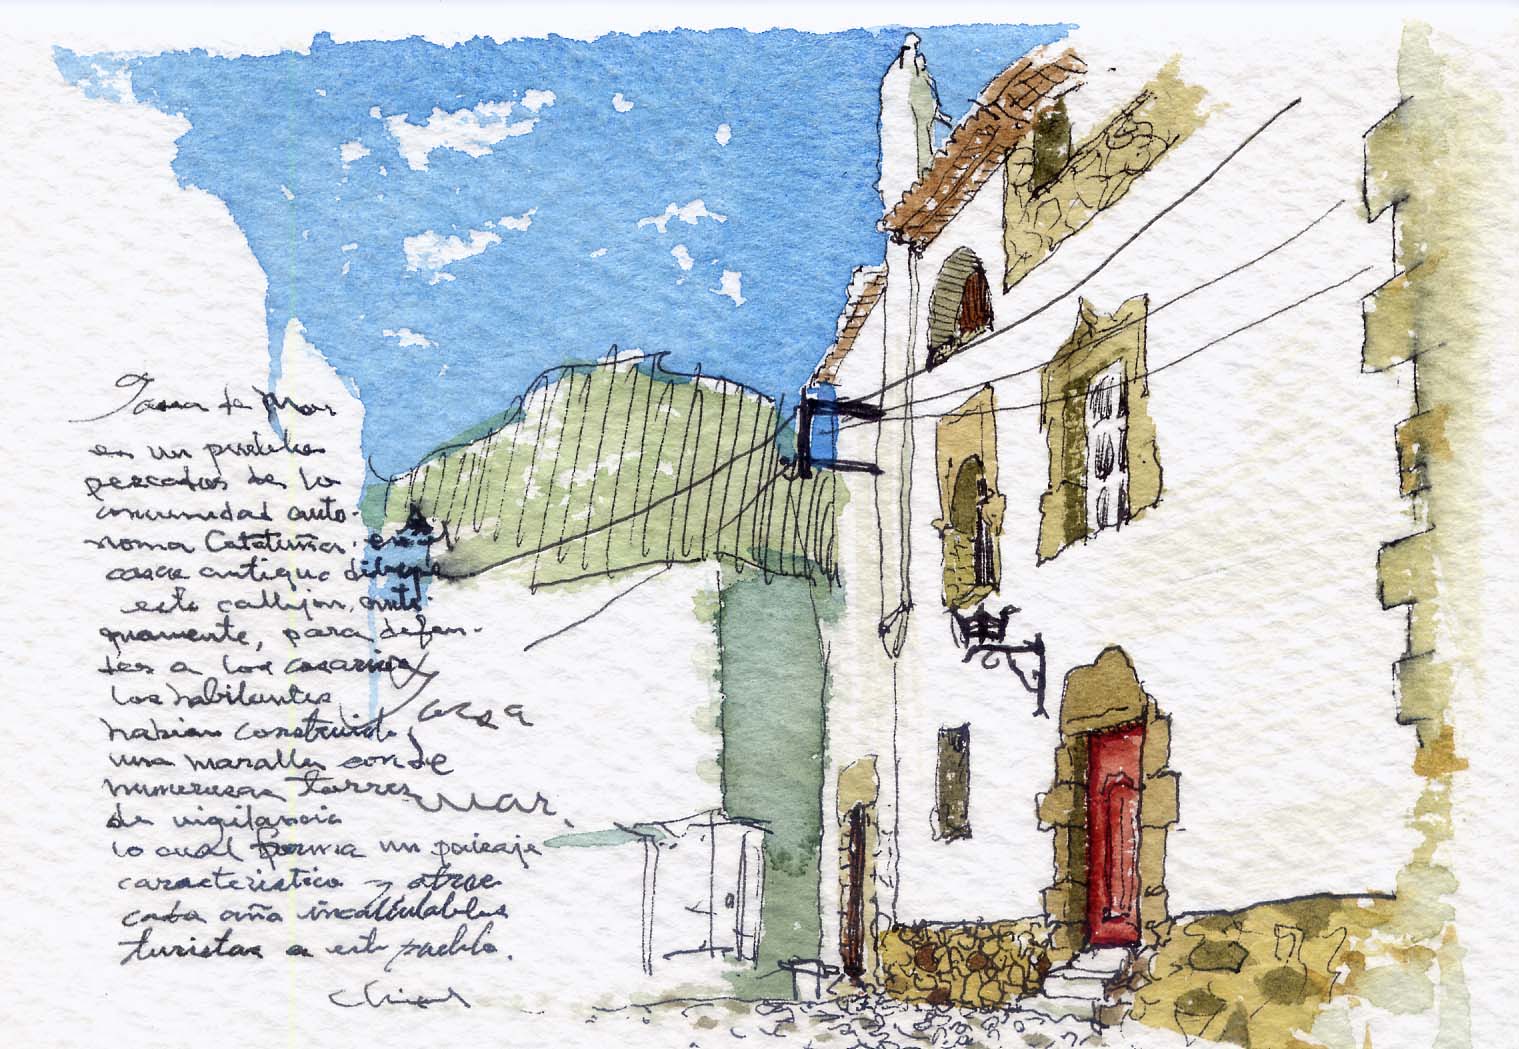 Tossa de Mar
es un pueblo
pescador de la
comunidad auto-
noma Cataluña. en el
casco antiguo dibujé
este callejón. anti-
guamente, para defen-
der a los corsarios
los habitantes
habían construido
una muralla con
numerosas torres
de vigilancia
lo cual forma un paisaje
caracteristico y atrae
cada año incalculables
turistas a este pueblo.
Tossa
de
Mar.